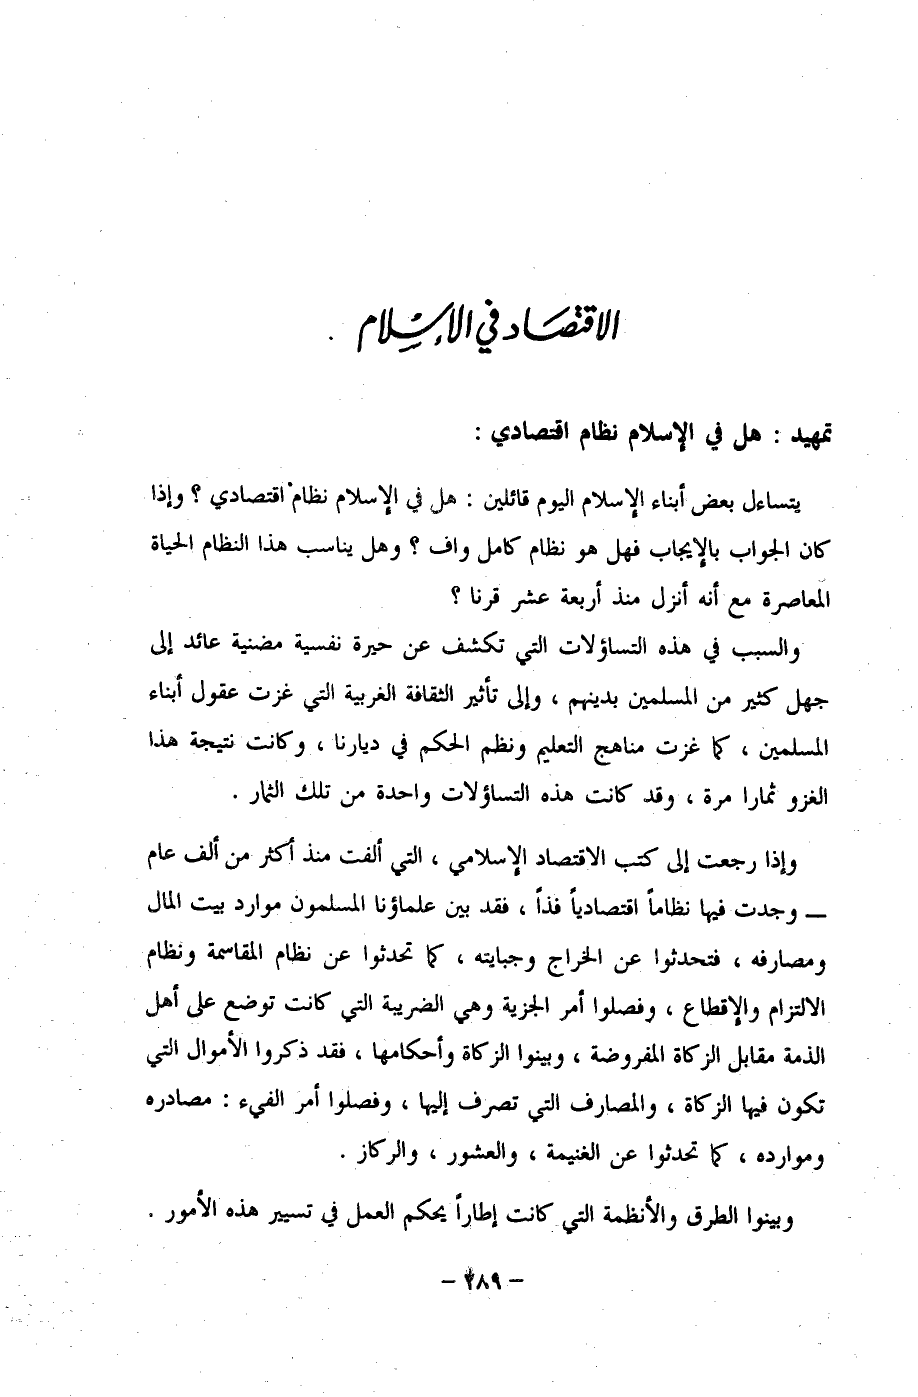 الاقتصاد في الإسلام
تمهيد : هل في الإسلام نظام اقتصادي :
يتساءل بعض أبناء الإسلام اليوم قائلين : هل في الإسلام نظام اقتصادي ؟ وإذا
كان الجواب بالإيجاب فهل هو نظام كامل واف ؟ وهل يناسب هذا النظام الحياة
المعاصرة مع أنه أنزل منذ أربعة عشر قرنا ؟
والسبب في هذه التساؤلات التي تكشف عن حيرة نفسية مضنية عائد إلى
جهل كثير من المسلمين بدينهم ، وإلى تأثير الثقافة الغربية التي غزت عقول أبناء
المسلمين ، كما غزت مناهج التعليم ونظم الحكم في ديارنا ، وكانت نتيجة هذا
الغزو ثمارا مرة ، وقد كانت هذه التساؤلات واحدة من تلك الثمار .
وإذا رجعت إلى كتب الاقتصاد الإسلامي ، التي ألفت منذ أكثر من ألف عام
ــ وجدت فيها نظاماً اقتصادياً فذاً ، فقد بين علماؤنا المسلمون موارد بيت المال
ومصارفه ، فتحدثوا عن الخراج وجبايته ، كما تحدثوا عن نظام المقاسمة ونظام
الالتزام والإقطاع ، وفصلوا أمر الجزية وهي الضريبة التي كانت توضع على أهل
الذمة مقابل الزكاة المفروضة ، وبينوا الزكاة وأحكامها ، فقد ذكروا الأموال التي
تكون فيها الزكاة ، والمصارف التي تصرف إليها ، وفصلوا أمر الفيء : مصادره
وموارده ، كما تحدثوا عن الغنيمة ، والعشور ، والركاز .
وبينوا الطرق والأنظمة التي كانت إطاراً يحكم العمل في تسيير هذه الأمور .